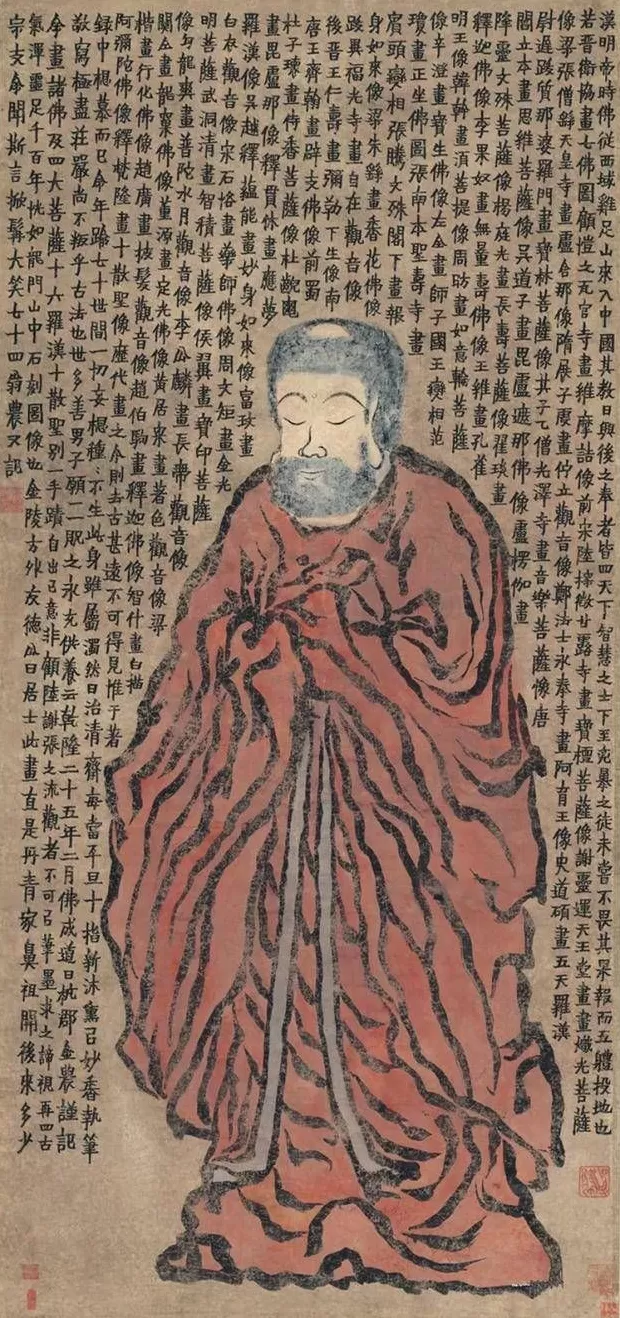 漢明帝時佛從西域雞足山來入中國其教日興後之奉者皆四天下智慧之士下至兇暴之徒未嘗不畏其果報而五體投地也
若晉衛協畫七佛圖顧愷之瓦官寺畫維摩詰像前宋陸探微甘露寺畫寶檀菩薩像謝靈運天王堂畫畫熾光菩薩
像梁張僧繇天皇寺畫盧舍那像隋展子虔畫佇立觀音像鄭法士永奉寺畫阿育王像史道碩畫五天羅漢
尉遲跋質那婆羅門畫寶林菩薩像其子乙僧光澤寺畫音樂菩薩像唐
閻立本畫思維菩薩像吳道子畫毘盧遮那佛像盧楞伽畫
降靈文殊菩薩像楊庭光畫長壽菩薩像翟琰畫
釋迦佛像李果奴畫無量壽佛像王維畫孔雀
明王像韓幹畫須菩提像周昉畫如意輪菩薩
像辛澄畫寶生佛像左全畫師子國王變相范
瓊畫正坐佛圖張南本聖壽寺畫
賓頭變相張騰文殊閣下畫報
身如來像梁朱繇畫香花佛像
跋異福光寺畫自在觀音像
後晉王仁壽畫彌勒下生像南
唐王齊翰畫辟支佛像前蜀
杜子瓌畫侍香菩薩像杜齯龜
畫毘盧那像釋貫休畫應夢
羅漢像吳越釋蘊能畫妙身如來像富玫畫
白衣觀音像宋石恪畫藥師佛像周文矩畫金光
明菩薩武洞清畫智積菩薩像侯翼畫寶印菩薩
像勾龍爽畫普陀水月觀音像李公麟畫長帶觀音像
關仝畫龍窠佛像董源畫定光佛像黃居寀畫著色觀音像梁
楷畫行化佛像趙廣畫披髮觀音像趙伯駒畫釋迦佛像智什畫白描
阿彌陀佛像釋梵隆畫十散聖像歷代畫之今則去古甚遠不可得見惟于著
錄中想慕而已今年踰七十世間一切妄想種種不生此身雖屬濁然日治清齋每當平旦十指新沐熏以妙香執筆
敬寫極盡莊嚴尚不叛乎古法也世多善男子願一貺之永充供養云乾隆二十五年二月佛成道日杭郡金農謹記
余畫諸佛及四大菩薩十六羅漢十散聖別一手蹟自出己意非顧陸謝張之流觀者不可以筆墨求之諦視再四古
氣渾噩足千百年恍如龍門山中石刻圖像也金陵方外友德公曰居士此畫直是丹青家鼻祖開後來多少
宗支余聞斯言掀髯大笑七十四翁農又記